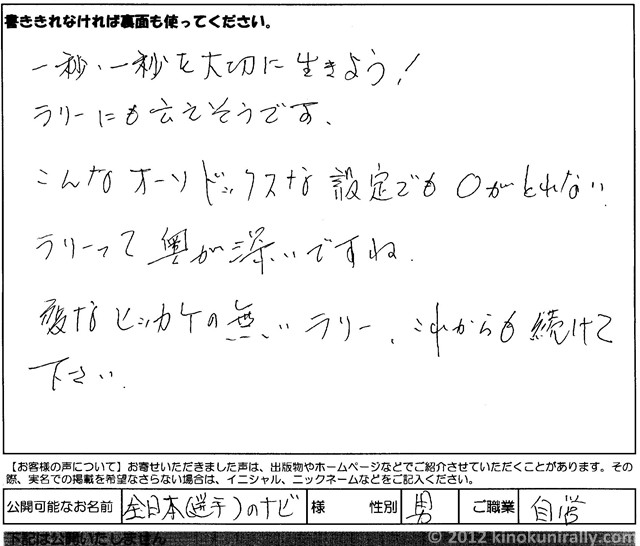 書ききれなければ裏面も使ってください。
一秒、一秒を大切に生きよう!
ラリーにも云えそうです、
こんなオーソドックスな設定でも0がとれない
ラリーって奥が深いですね.
変なヒッカケの無いラリー、これからも続けて
下さい.
【お客様の声について】お寄せいただきました声は、出版物やホームページなどでご紹介させていただくことがあります。その
際、実名での掲載を希望なさらない場合は、イニシャル、ニックネームなどをご記入ください。
公開可能なお名前 全日本(選手)のナビ 様 性別 男 ご職業 自営
下記は公開いたしません
© 2012 kinokunirally.com